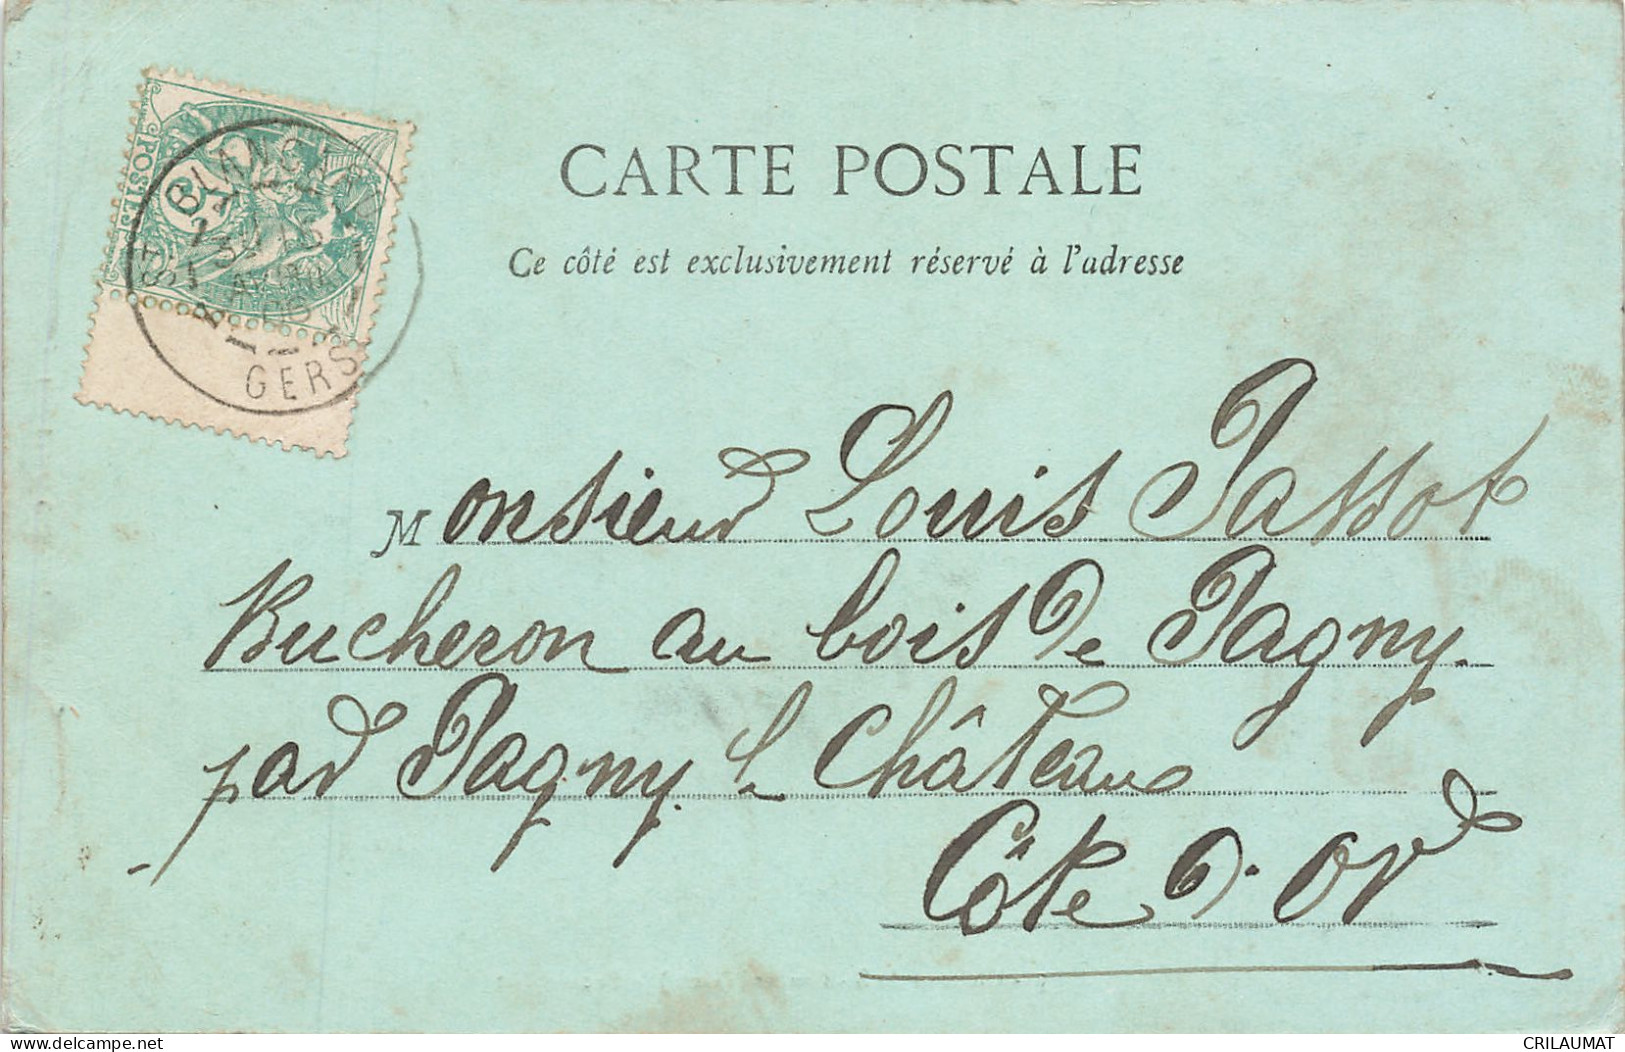 CARTE POSTALE
Ce côté est exclusivement réservé à l'adresse
POSTES
5
GERS
Monsieur Louis Passot
Bucheron au bois de Pagny.
par Pagny le Château
Côte d'Or
CRILAUMAT